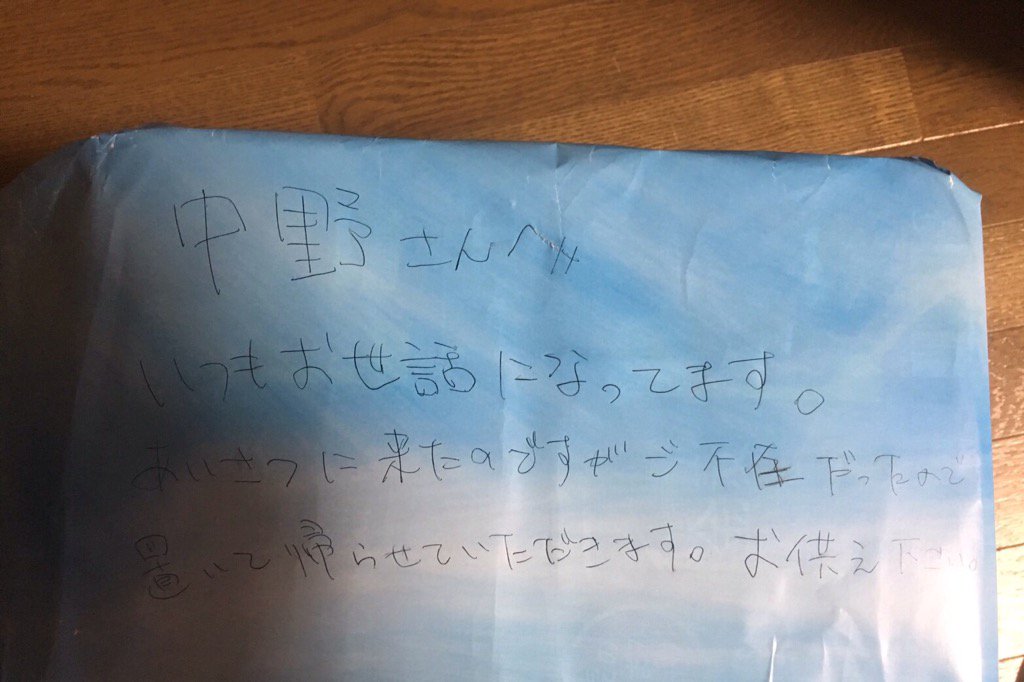 中野さんへ〃
いつもお世話になってます。
あいさつに来たのですがご不在だったので
置いて帰らせていただきます。お供え下さい。